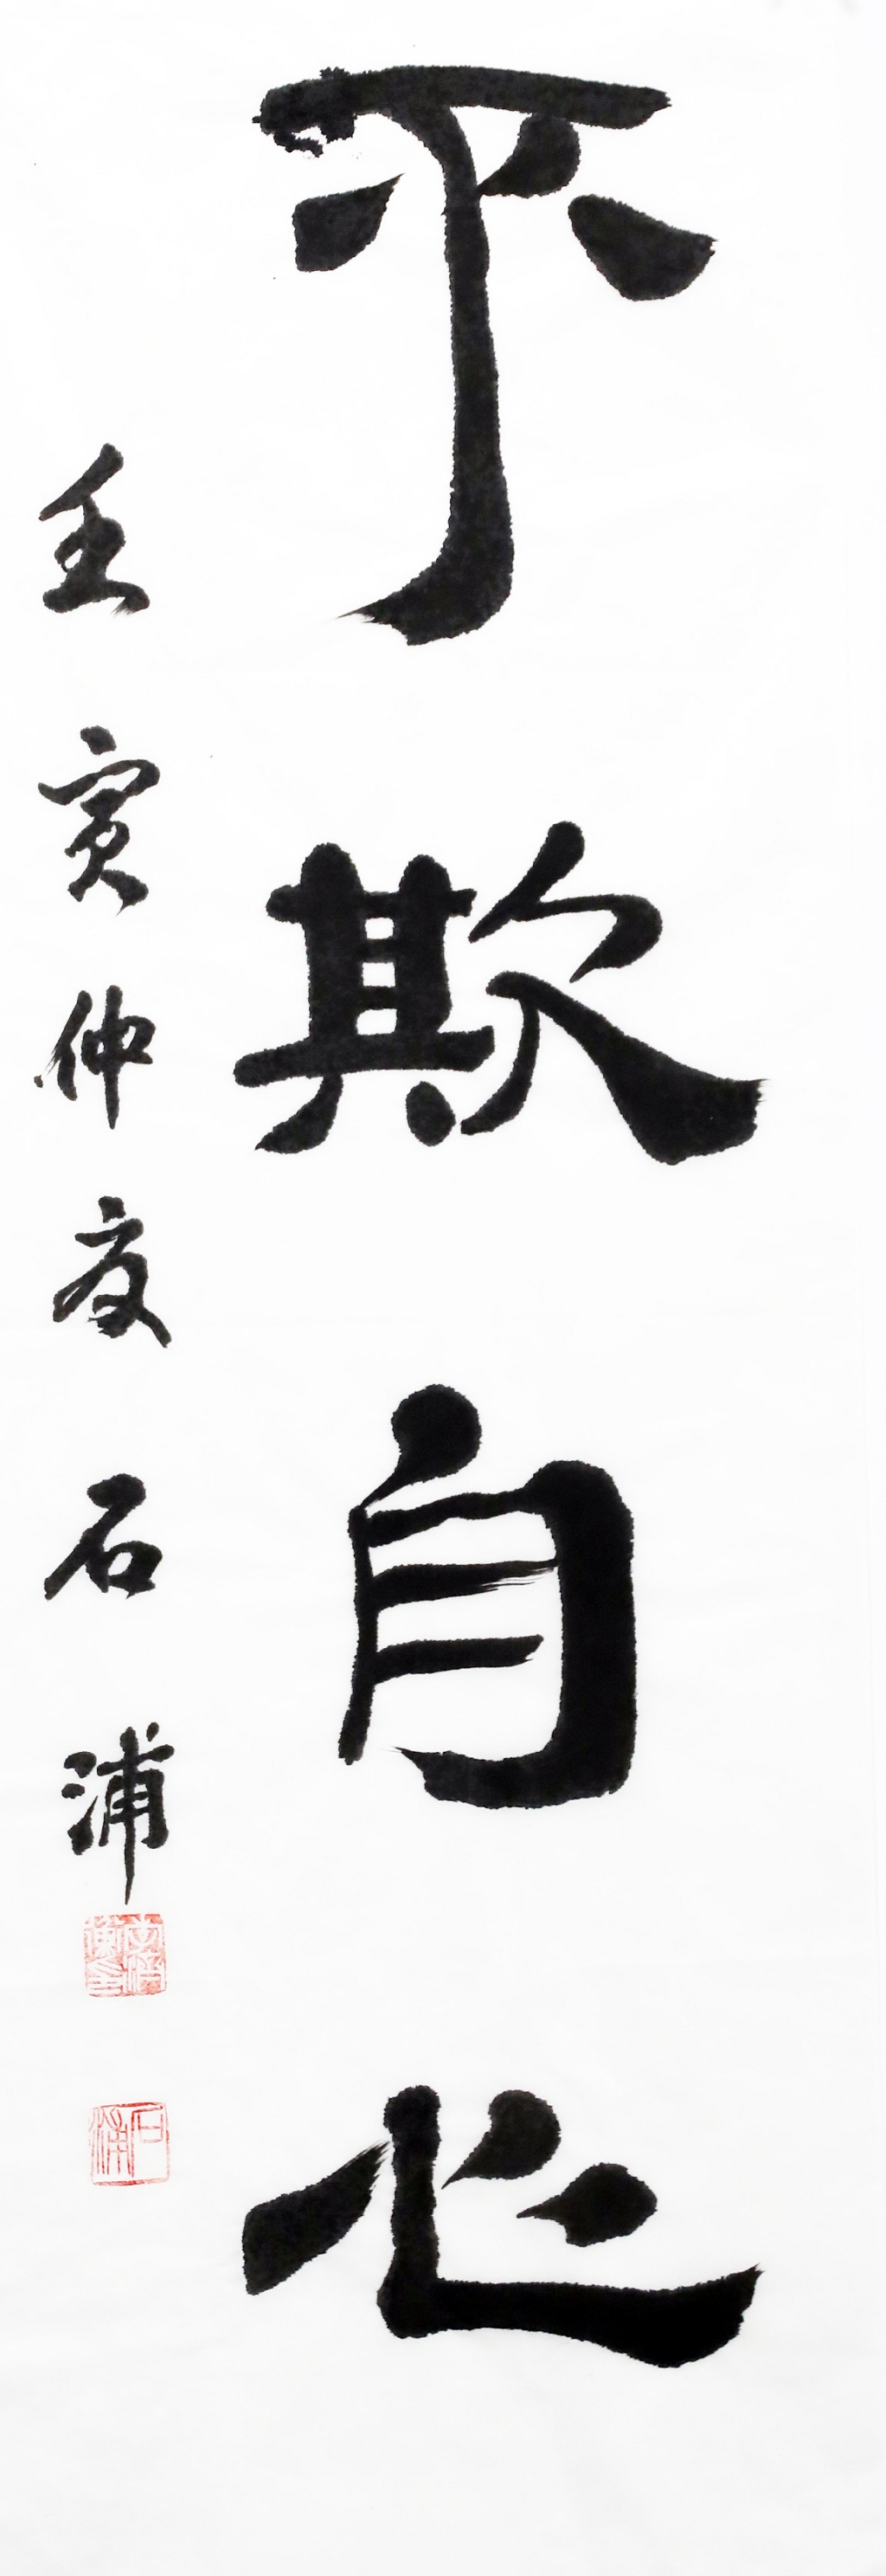 不欺自心
壬寅仲夏 石浦
石浦